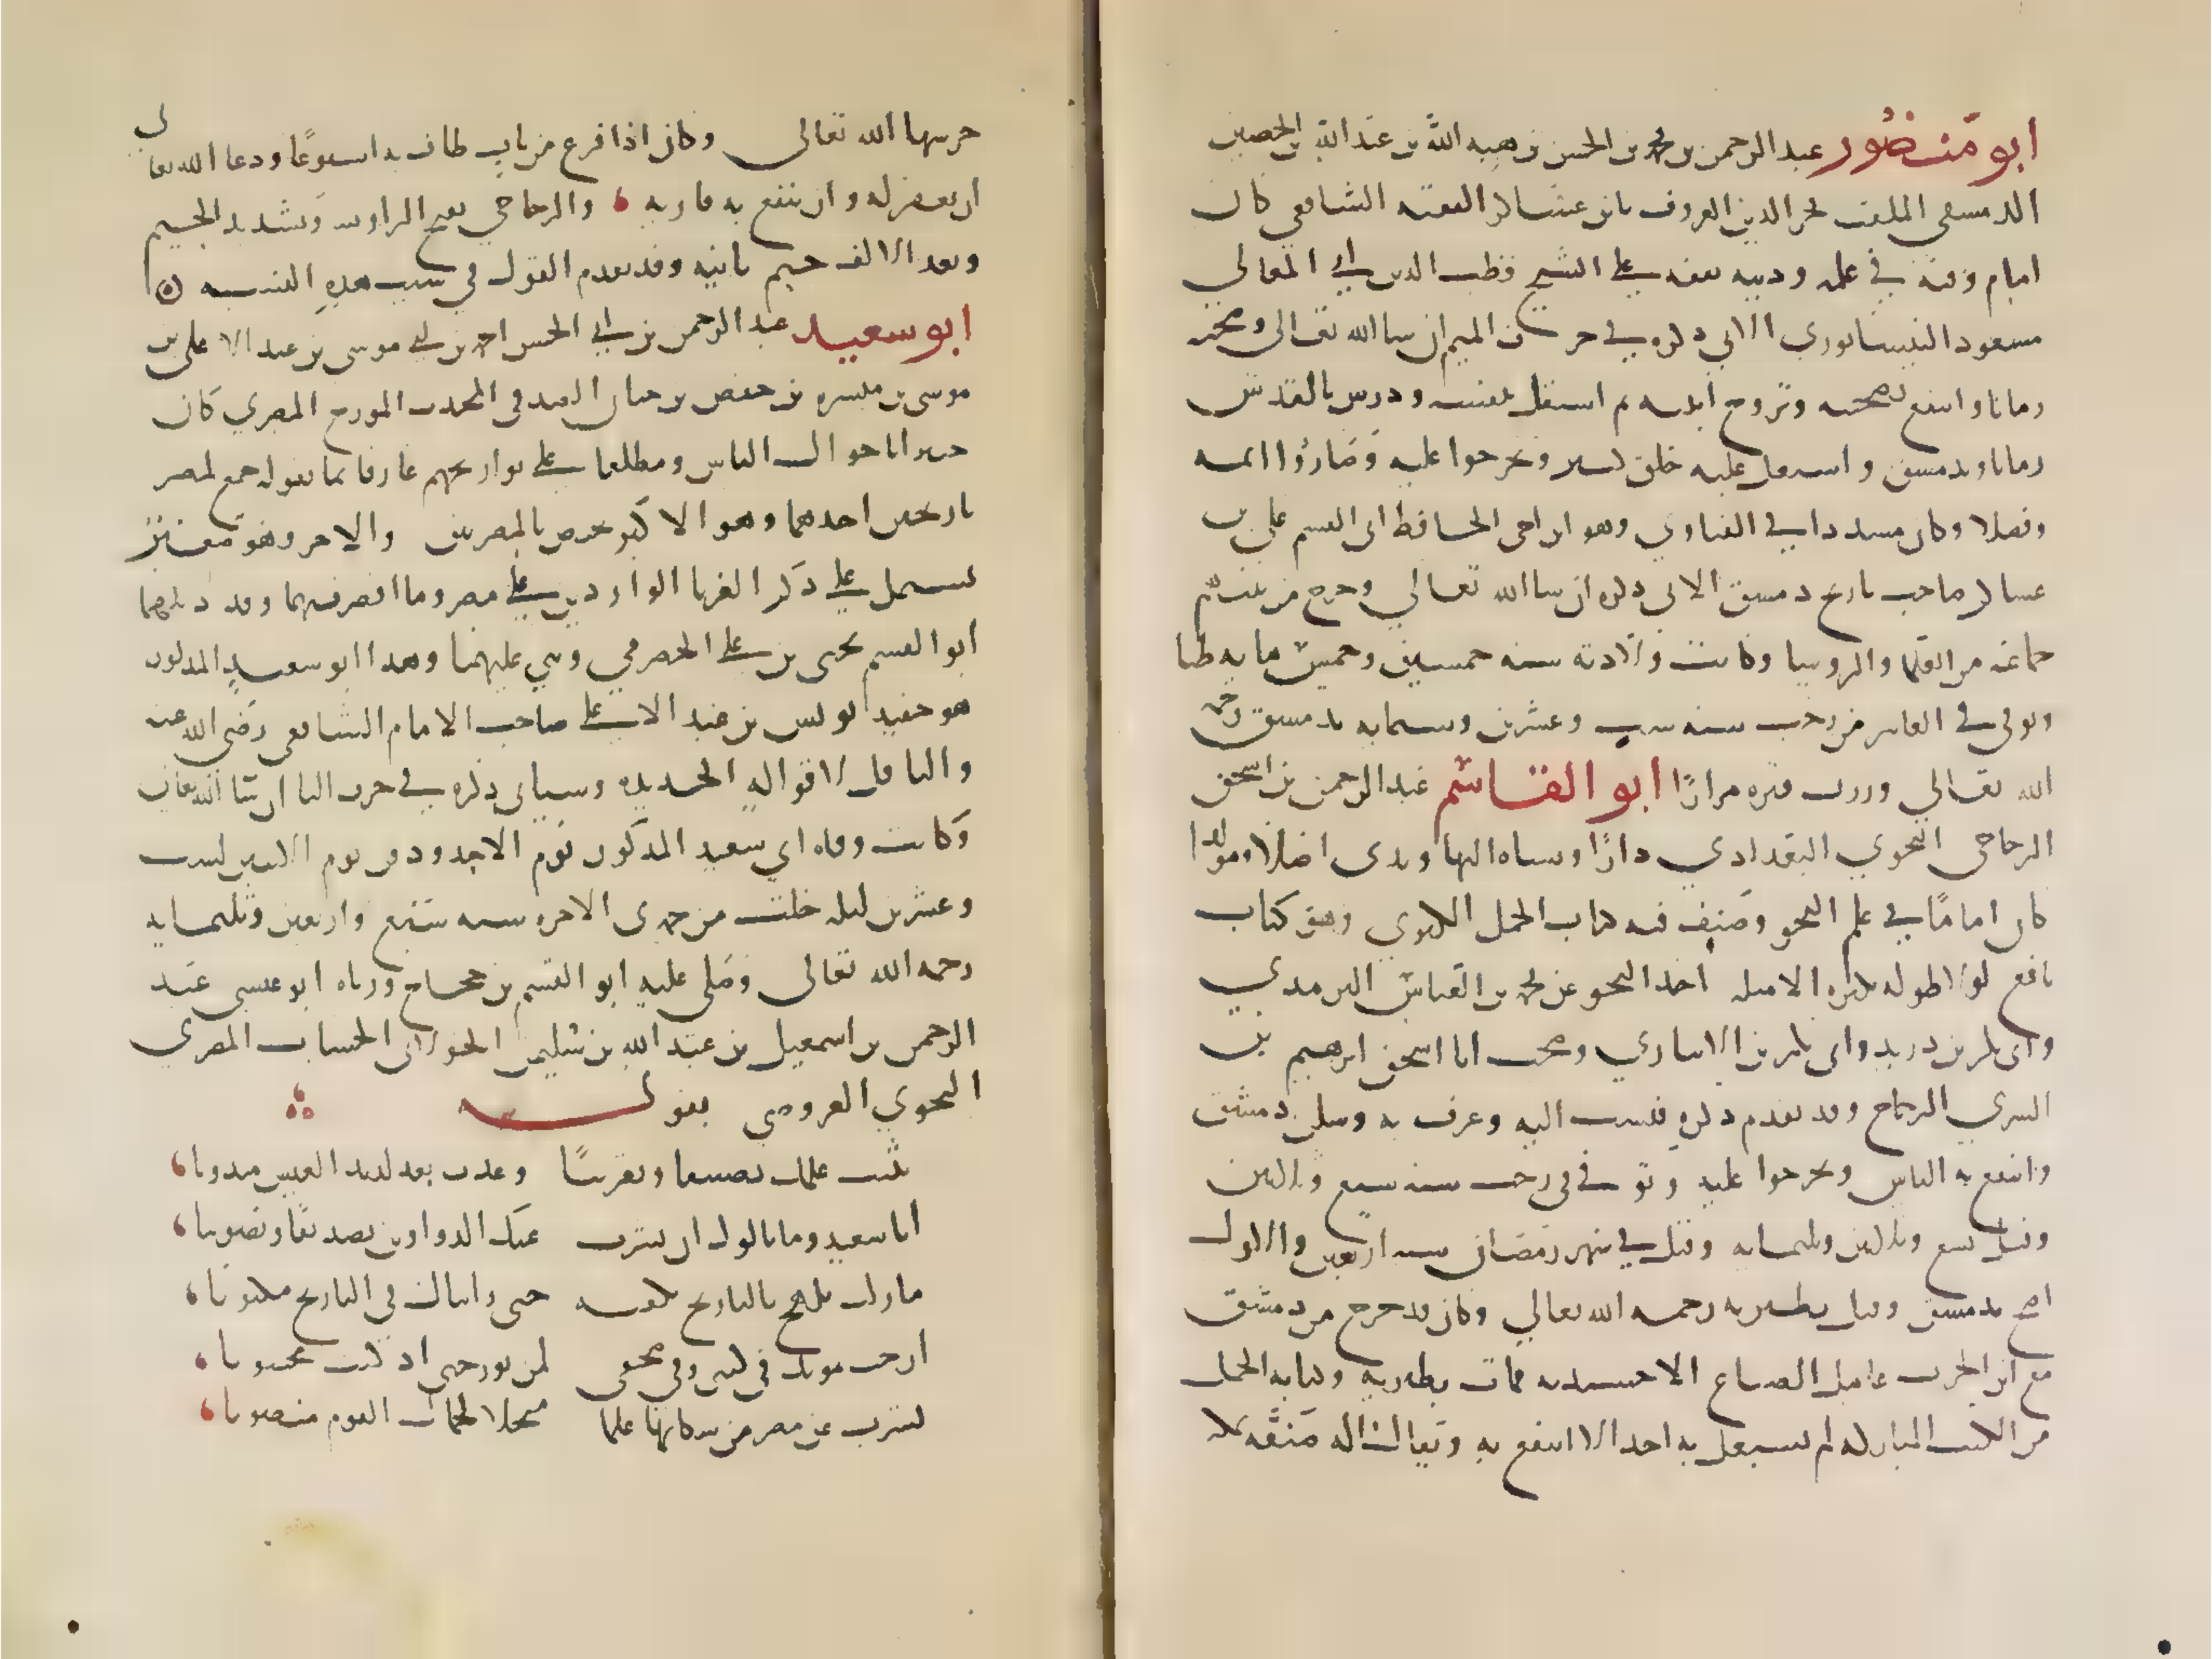 ابو منصور عبد الرحمن بن محمد بن الحسن بن هبه الله بن عبد الله بن الحصين
الدمشقي الملقب فخر الدين المعروف بابن عساكر الفقيه الشافعي كان
امام وقته في علمه ودينه تفقه على الشيخ قطب الدين ابي المعالي
مسعود النيسابوري الاتي ذكره في حرف الميم ان شا الله تعالى وصحبه
زمانا وانتفع بصحبته وتزوج ابنته ثم استقل بنفسه ودرس بالقدس
زمانا وبدمشق واشتغل عليه خلق كثير وتخرجوا عليه وصاروا ائمه
وفضلا وكان مسددا في الفتاوي وهو ابن اخي الحافظ ابي القسم علي بن
عساكر صاحب تاريخ دمشق الاتي ذكره ان شا الله تعالى وخرج من بيتهم
جماعه من العلما والروسا وكانت ولادته سنه خمسين وخمس مايه ظنا
وتوفي في العاشر من رجب سنه عشرين وستمايه بدمشق رحمه
الله تعالى وزرت قبره مرارا ابو القاسم عبد الرحمن بن اسحق
الزجاجي النحوي البغدادي دارا ونشاه النهاوندي اصلا ومولدا
كان اماما في علم النحو وصنف فيه كتاب الجمل الكبري وهو كتاب
نافع لولا طوله بكثره الامثله اخذ النحو عن محمد بن العباس اليزيدي
وابي بكر بن دريد وابي بكر بن الانباري وصحب ابا اسحق ابرهيم بن
السري الزجاج وقد تقدم ذكره فنسب اليه وعرف به وسكن دمشق
وانتفع به الناس وتخرجوا عليه وتوفي في رجب سنه سبع وثلاثين
وقيل تسع وثلاثين وثلثمايه وقيل في شهر رمضان سنه اربعين والاول
اصح بدمشق وقيل بطبريه رحمه الله تعالى وكان قد خرج من دمشق
مع ابن الحرث عامل الضياع الاخشيديه فمات بطبريه وكتابه الجمل
من الكتب المباركه لم يشتغل به احد الا انتفع به ويقال انه صنفه بمكه
حرسها الله تعالى وكان اذا فرغ من باب طاف به اسبوعا ودعا الله تعالى
ان يغفر له وان ينتفع به قاريه والزجاجي بفتح الزا وتشديد الجيم
وبعد الالف جيم ثانيه وقد تقدم القول في سبب هذه النسبه
ابو سعيد عبد الرحمن بن ابي الحسن احمد بن ابي موسى يونس بن عبد الاعلى بن
موسى بن ميسره بن حفص بن حيان الصدفي المحدث المورخ المصري كان
خبيرا باحوال الناس ومطلعا على تواريخهم عارفا بما يقوله جمع لمصر
تاريخين احدهما وهو الاكبر يختص بالمصريين والاخر وهو صغير
يشتمل على ذكر الغربا الواردين على مصر وما اقصر فيهما وقد ذيلهما
ابو القسم يحيى بن علي الحضرمي وبنى عليهما وهذا ابو سعيد المذكور
هو حفيد يونس بن عبد الاعلى صاحب الامام الشافعي رضي الله عنه
والناقل لاقواله الجديده وسياتي ذكره في حرف اليا ان شا الله تعالى
وكانت وفاه ابي سعيد المذكور يوم الاحد ودفن يوم الاثنين لست
وعشرين ليله خلت من جمدى الاخره سنه سبع واربعين وثلثمايه
رحمه الله تعالى وصلى عليه ابو القسم بن حجاج ورثاه ابو عيسى عبد
الرحمن بن اسمعيل بن عبد الله بن سليمن الخولاني الخشاب المصري
النحوي العروضي بقوله
بثثت علمك تصنيفا وتقريبا وعدت بعد لذيذ العيش مندوبا
ابا سعيد وما نالوك ان نشرت عنك الدواوين تصديقا وتصويبا
ما زلت تلهج بالتاريخ تكتبه حتى رايناك في التاريخ مكتوبا
ارخت موتك في ذكري وفي صحفي لمن يورخني اذ كنت محسوبا
نشرت عن مصر من سكانها علما مبجلا لجمال القوم منصوبا